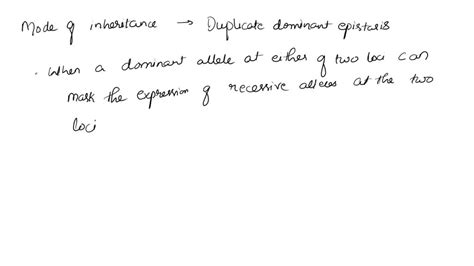 Mode of inheritance → Duplicate dominant epistasis
. When a dominant allele at either of two loci can
mask the expression of recessive alleles at the two
loci